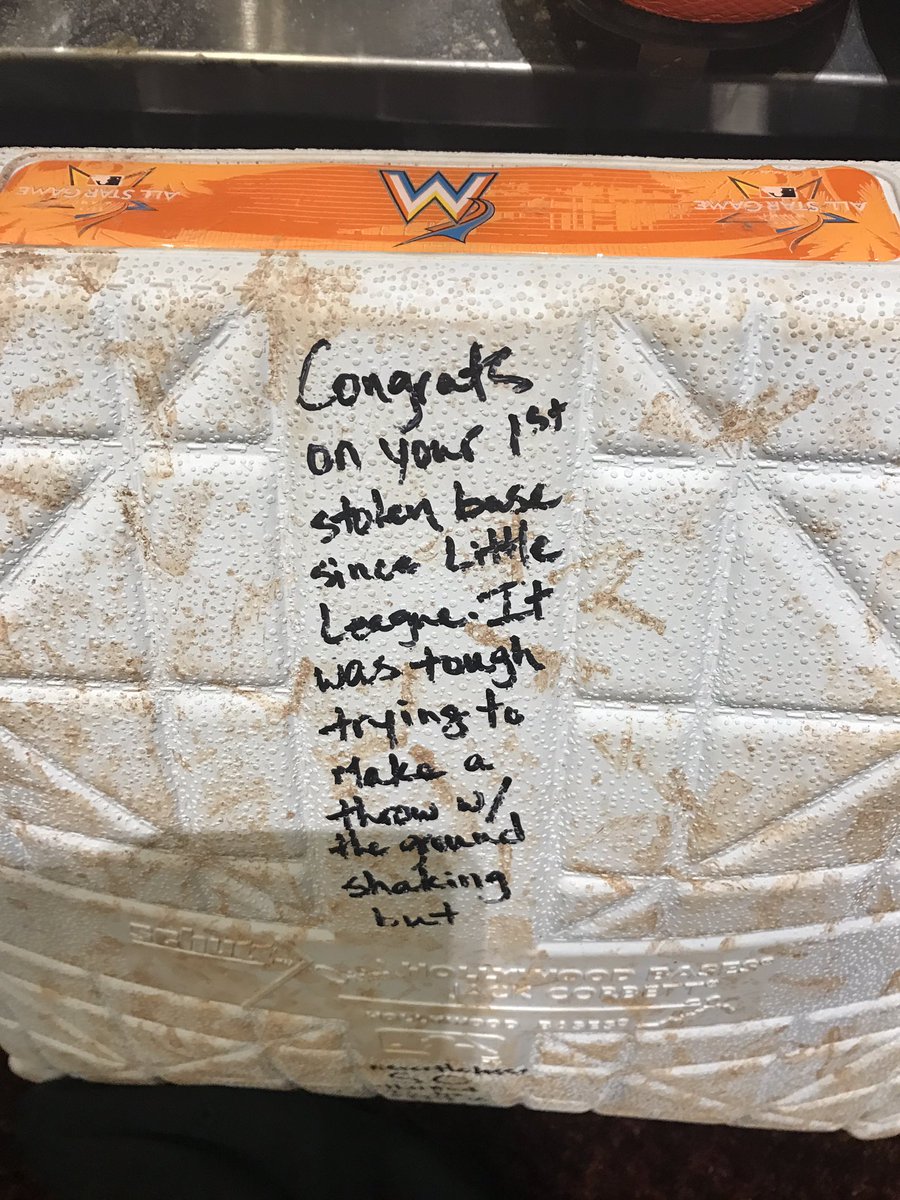 ALL STAR GAME
ALL STAR GAME
Congrats
on your 1st
stolen base
since Little
League. It
was tough
trying to
Make a
throw w/
the ground
shaking
but
schutt
HOLLYWOOD BASES
JACK CORBETT
HOLLYWOOD BASES